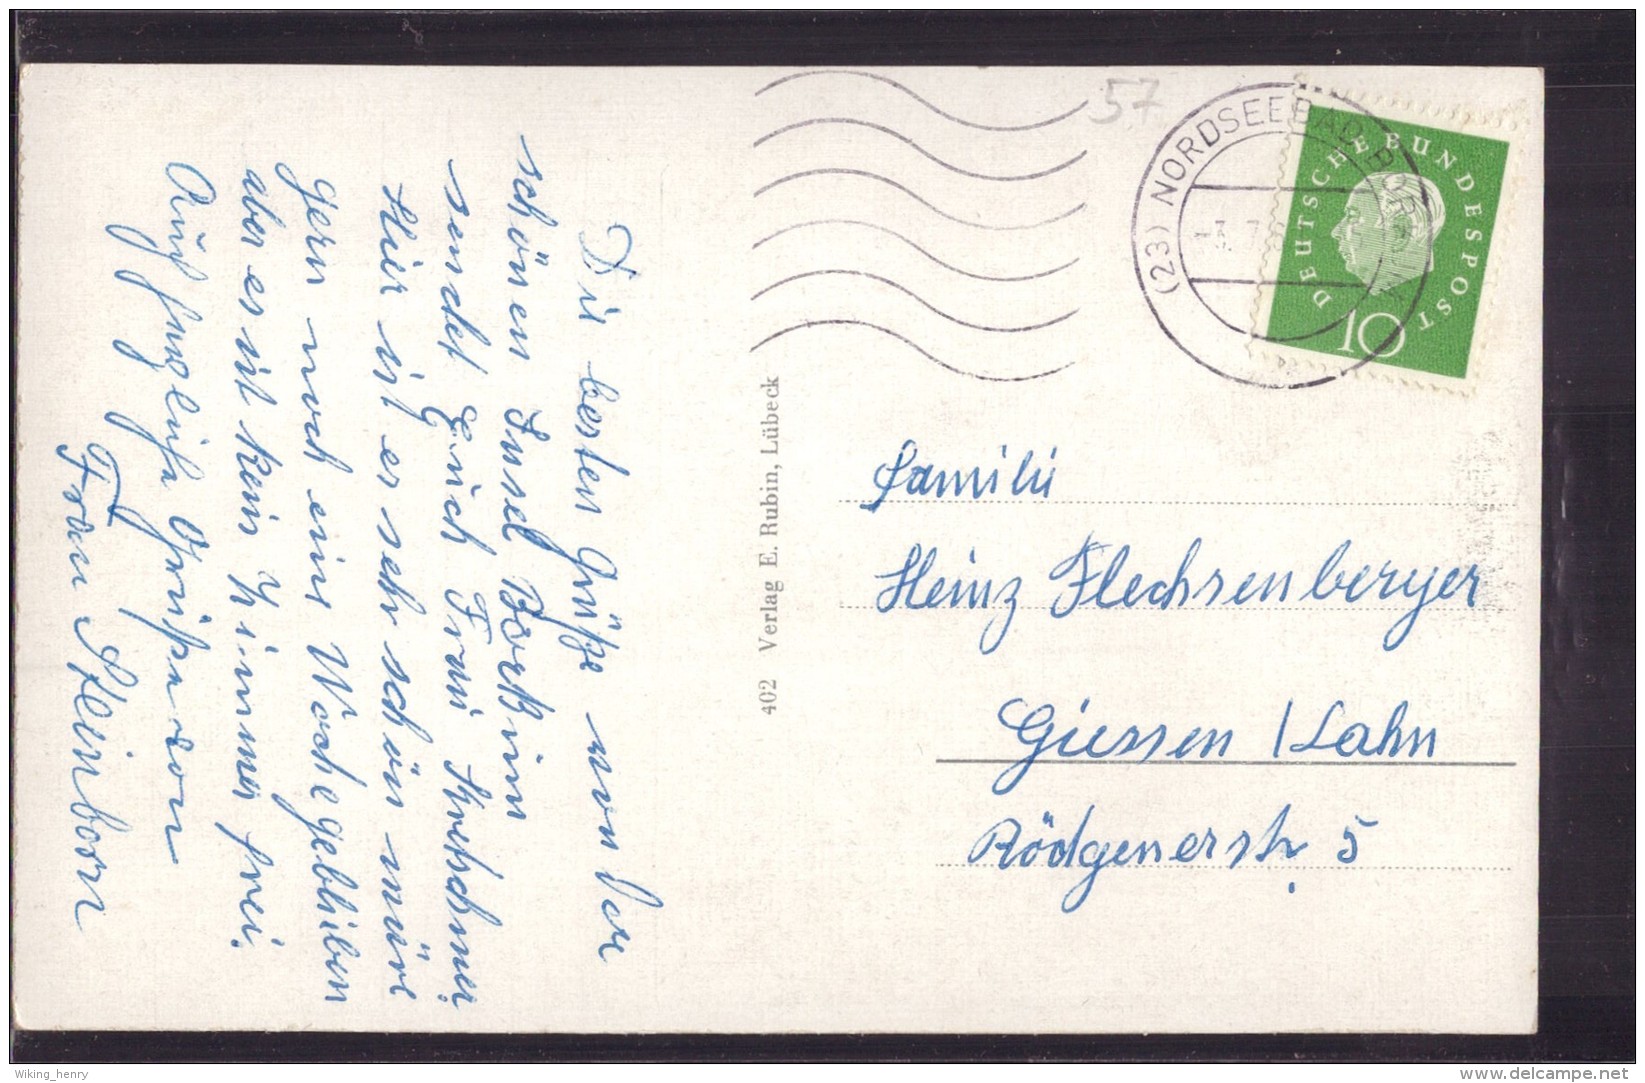 57
(23) NORDSEEBAD BORKUM
DEUTSCHE BUNDESPOST
10
Die besten Grüße von der
schönen Insel Borkum
sendet Euch Frau Kretschmer
Hier ist es sehr schön wäre
gern noch eine Woche geblieben
aber es ist kein Zimmer frei.
Auch herzliche Grüße von
Frau Steinborn
402 Verlag E. Rubin, Lübeck
Familie
Heinz Flechsenberger
Giessen / Lahn
Rödgenerstr. 5
Wiking_henry
www.delcampe.net